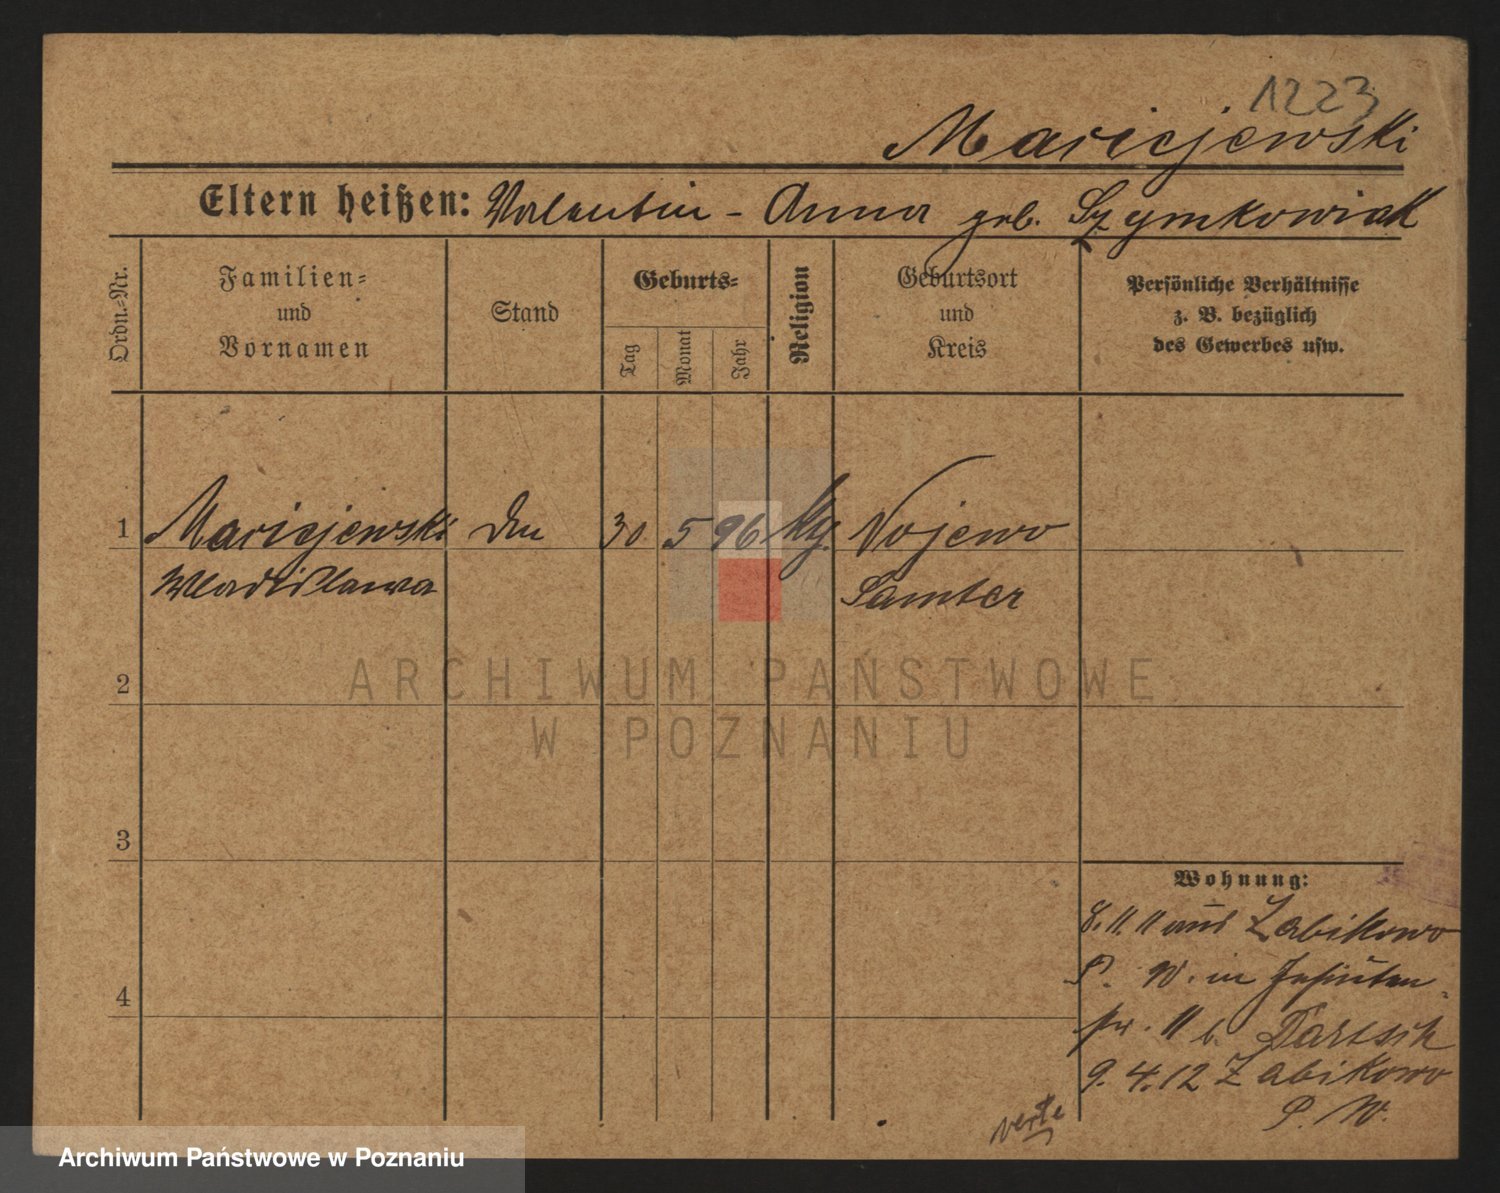 1223
Maricjewski
Eltern heißen: Valentin - Anna geb. Szymkowiak
Ordn.-Nr.
Familien-
und
Vornamen
Stand
Geburts-
Tag
Monat
Jahr
Religion
Geburtsort
und
Kreis
Persönliche Verhältnisse
z. B. bezüglich
des Gewerbes usw.
1 Maricjewski 30 5 96 Nojewo
Wladislawa Samter
2
3
4
Wohnung:
8. 11. 11 aus Zabikowo
P. W. in Jesuiten
str. 11 b.
9. 4. 12 Zabikowo
P. W.
verte
ARCHIWUM PAŃSTWOWE
W POZNANIU
Archiwum Państwowe w Poznaniu